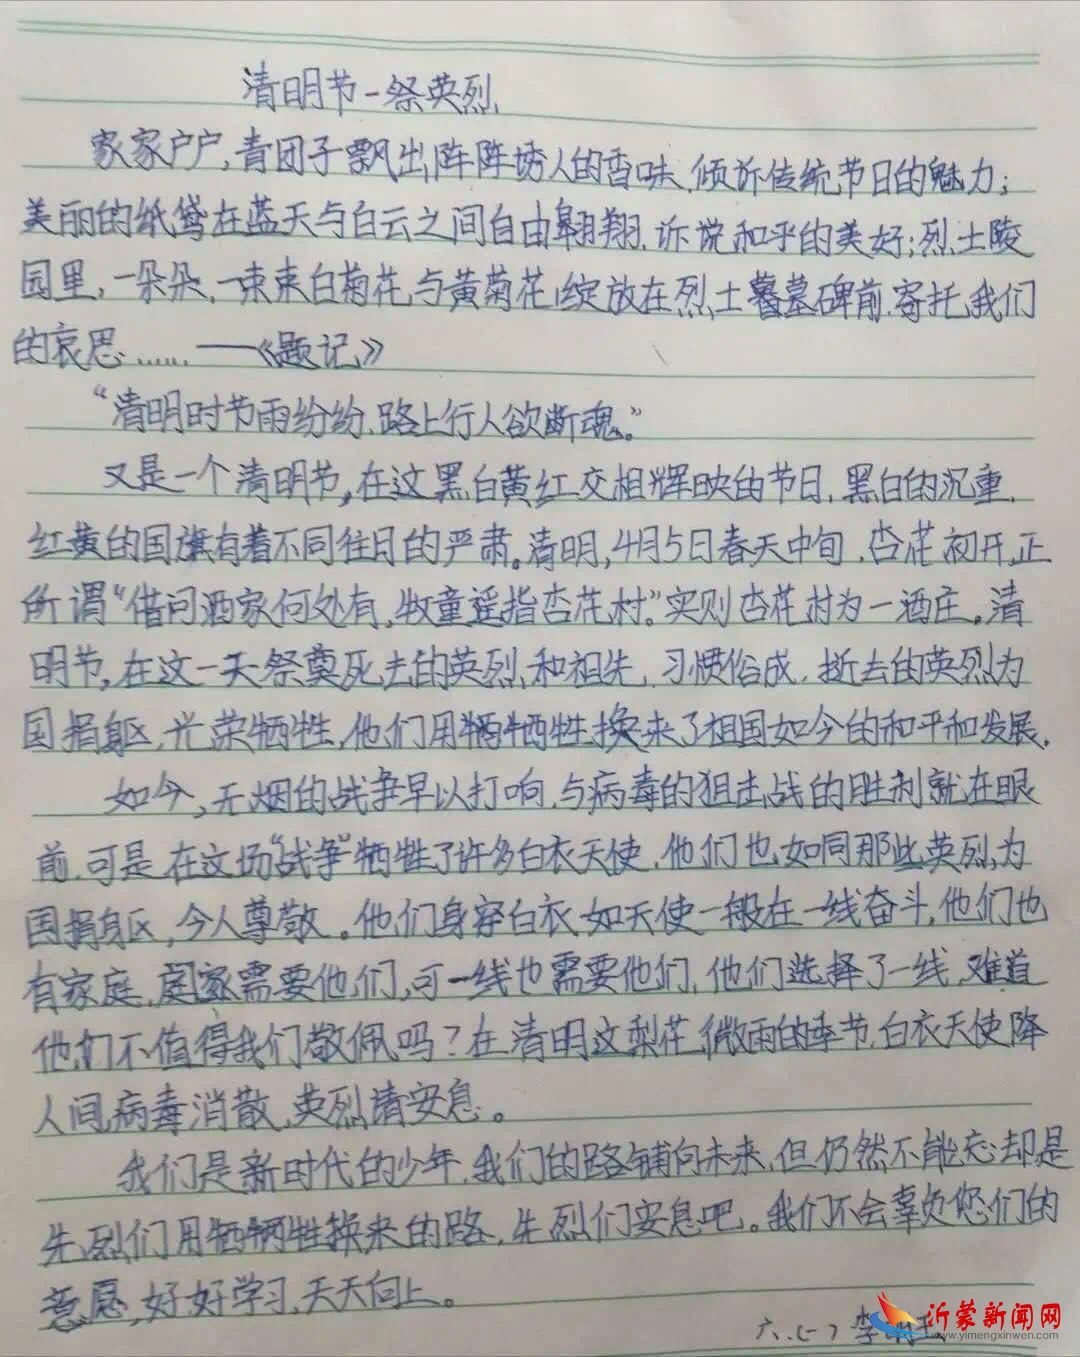 清明节-祭英烈
家家户户,青团子飘出阵阵诱人的香味,倾诉传统节日的魅力;
美丽的纸鸢在蓝天与白云之间自由翱翔,诉说和平的美好;烈士陵
园里,一朵朵,一束束白菊花与黄菊花,绽放在烈士墓碑前,寄托我们
的哀思……——《题记》
“清明时节雨纷纷,路上行人欲断魂。”
又是一个清明节,在这黑白黄红交相辉映的节日,黑白的沉重,
红黄的国旗有着不同往日的严肃。清明,4月5日春天中旬,杏花初开,正
所谓“借问酒家何处有,牧童遥指杏花村。”实则杏花村为一酒庄。清
明节,在这一天祭奠死去的英烈和祖先,习惯俗成,逝去的英烈为
国捐身区,光荣牺牲,他们用牺牲换来了祖国如今的和平和发展,
如今,无烟的战争早以打响,与病毒的狙击战的胜利就在眼
前,可是在这场“战争”牺牲了许多白衣天使,他们也如同那些英烈,为
国捐身区,令人尊敬。他们身穿白衣如天使一般在一线奋斗,他们也
有家庭,家需要他们,可一线也需要他们,他们选择了一线,难道
他们不值得我们敬佩吗?在清明这梨花微雨的季节,白衣天使降
人间,病毒消散,英烈请安息。
我们是新时代的少年,我们的路铺向未来,但仍然不能忘却是
先烈们用牺牲换来的路,先烈们安息吧。我们不会辜负您们的
意愿,好好学习,天天向上。
六.(一) 李
沂蒙新闻网
www.yimengxinwen.com